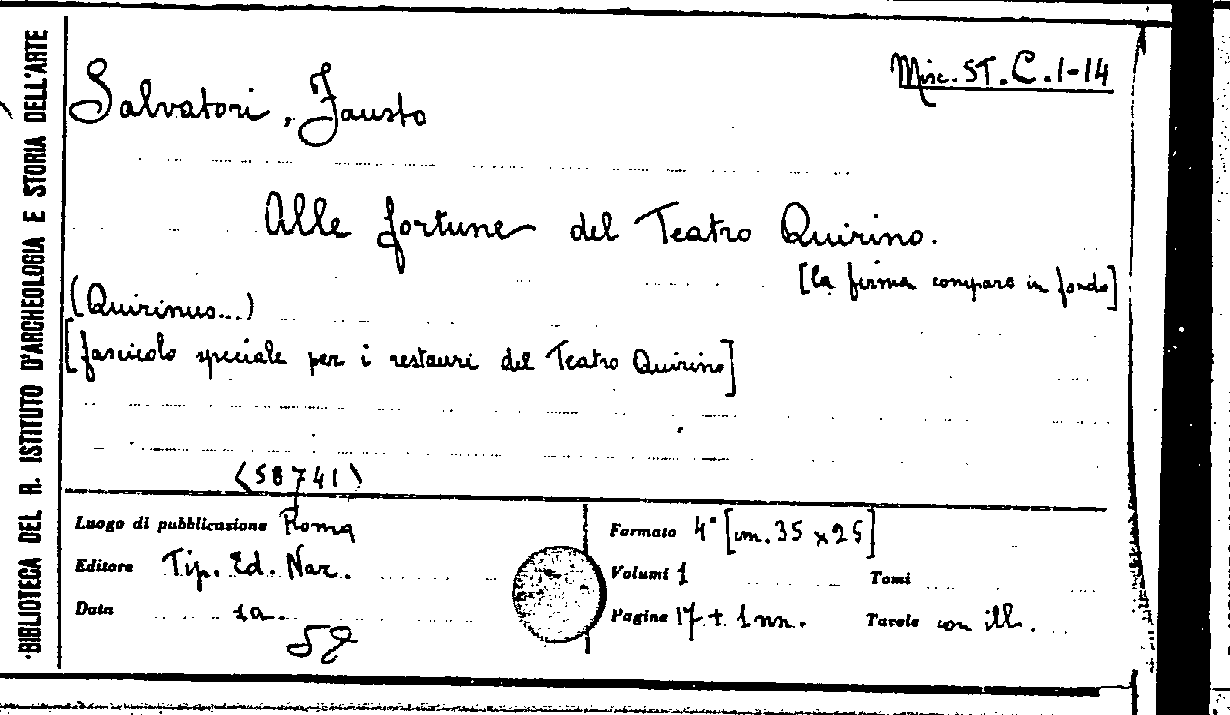 BIBLIOTECA DEL R. ISTITUTO D'ARCHEOLOGIA E STORIA DELL'ARTE
Misc. ST. C. 1-14
Salvatori, Fausto
Alle fortune del Teatro Quirino.
[la firma compare in fondo]
(Quirinus...)
[fascicolo speciale per i restauri del Teatro Quirino]
(58741)
Luogo di pubblicazione Roma
Editore Tip. Ed. Naz.
Data
Formato 4° [cm. 35 x 25]
Volumi 1
Tomi
Pagine 17 + 1 nn.
Tavole con ill.